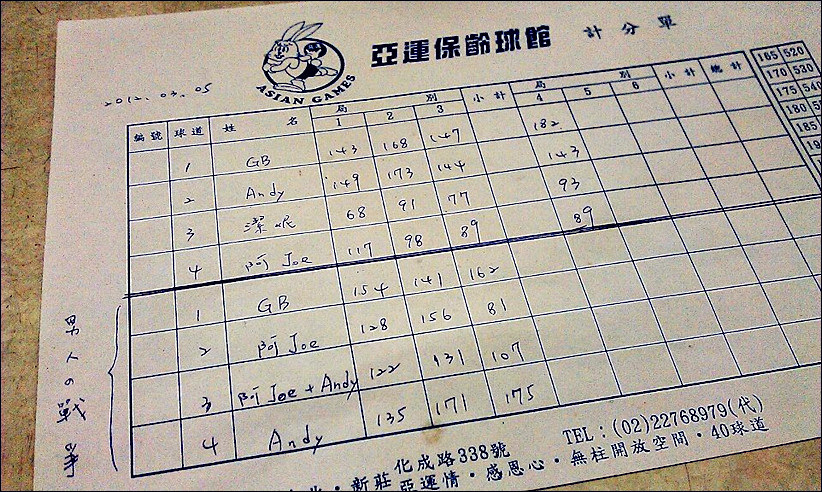 亞運保齡球館 計分單
ASIAN GAMES
2012.03.05
165 520
170 530
175 540
180
185
編號 球道 姓名 局別 小計 局別 小計 總計
1 2 3 4 5 6
1 GB 143 168 147 182
2 Andy 149 173 144 143
3 潔 68 91 77 93
4 阿Joe 117 98 89 89
男人の戰爭
1 GB 154 141 162
2 阿Joe 128 156 81
3 阿Joe+Andy 122 131 107
4 Andy 135 171 175
新莊化成路338號 TEL:(02)22768979(代)
亞運情·感恩心·無柱開放空間·40球道